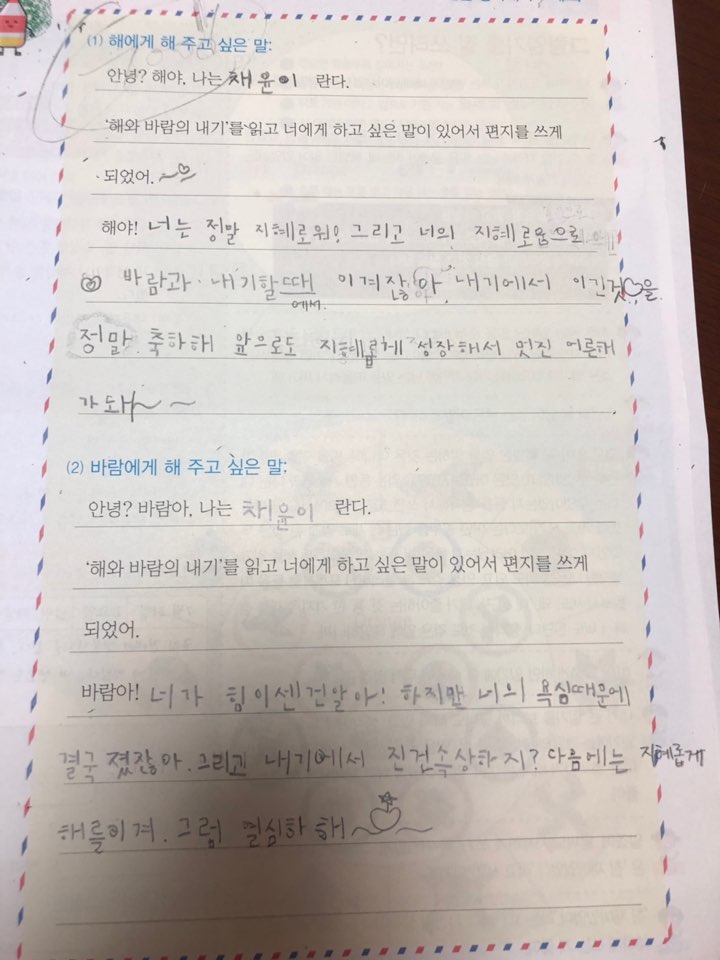 (1) 해에게 해 주고 싶은 말:
안녕? 해야, 나는 채윤이 란다.
'해와 바람의 내기'를 읽고 너에게 하고 싶은 말이 있어서 편지를 쓰게
되었어.
해야! 너는 정말 지혜로워! 그리고 너의 지혜로움으로
바람과 내기할때 이겨잖아. 내기에서 이긴것을
에서
정말 축하해 앞으로도 지혜롭게 성장해서 멋진 어른해
가 되
(2) 바람에게 해 주고 싶은 말:
안녕? 바람아, 나는 채윤이 란다.
'해와 바람의 내기'를 읽고 너에게 하고 싶은 말이 있어서 편지를 쓰게
되었어.
바람아! 너가 힘이센건알아! 하지만 너의 욕심때문에
결국 졌잖아. 그리고 내기에서 진건속상하지? 다음에는 지혜롭게
해를이겨. 그럼 열심하 해